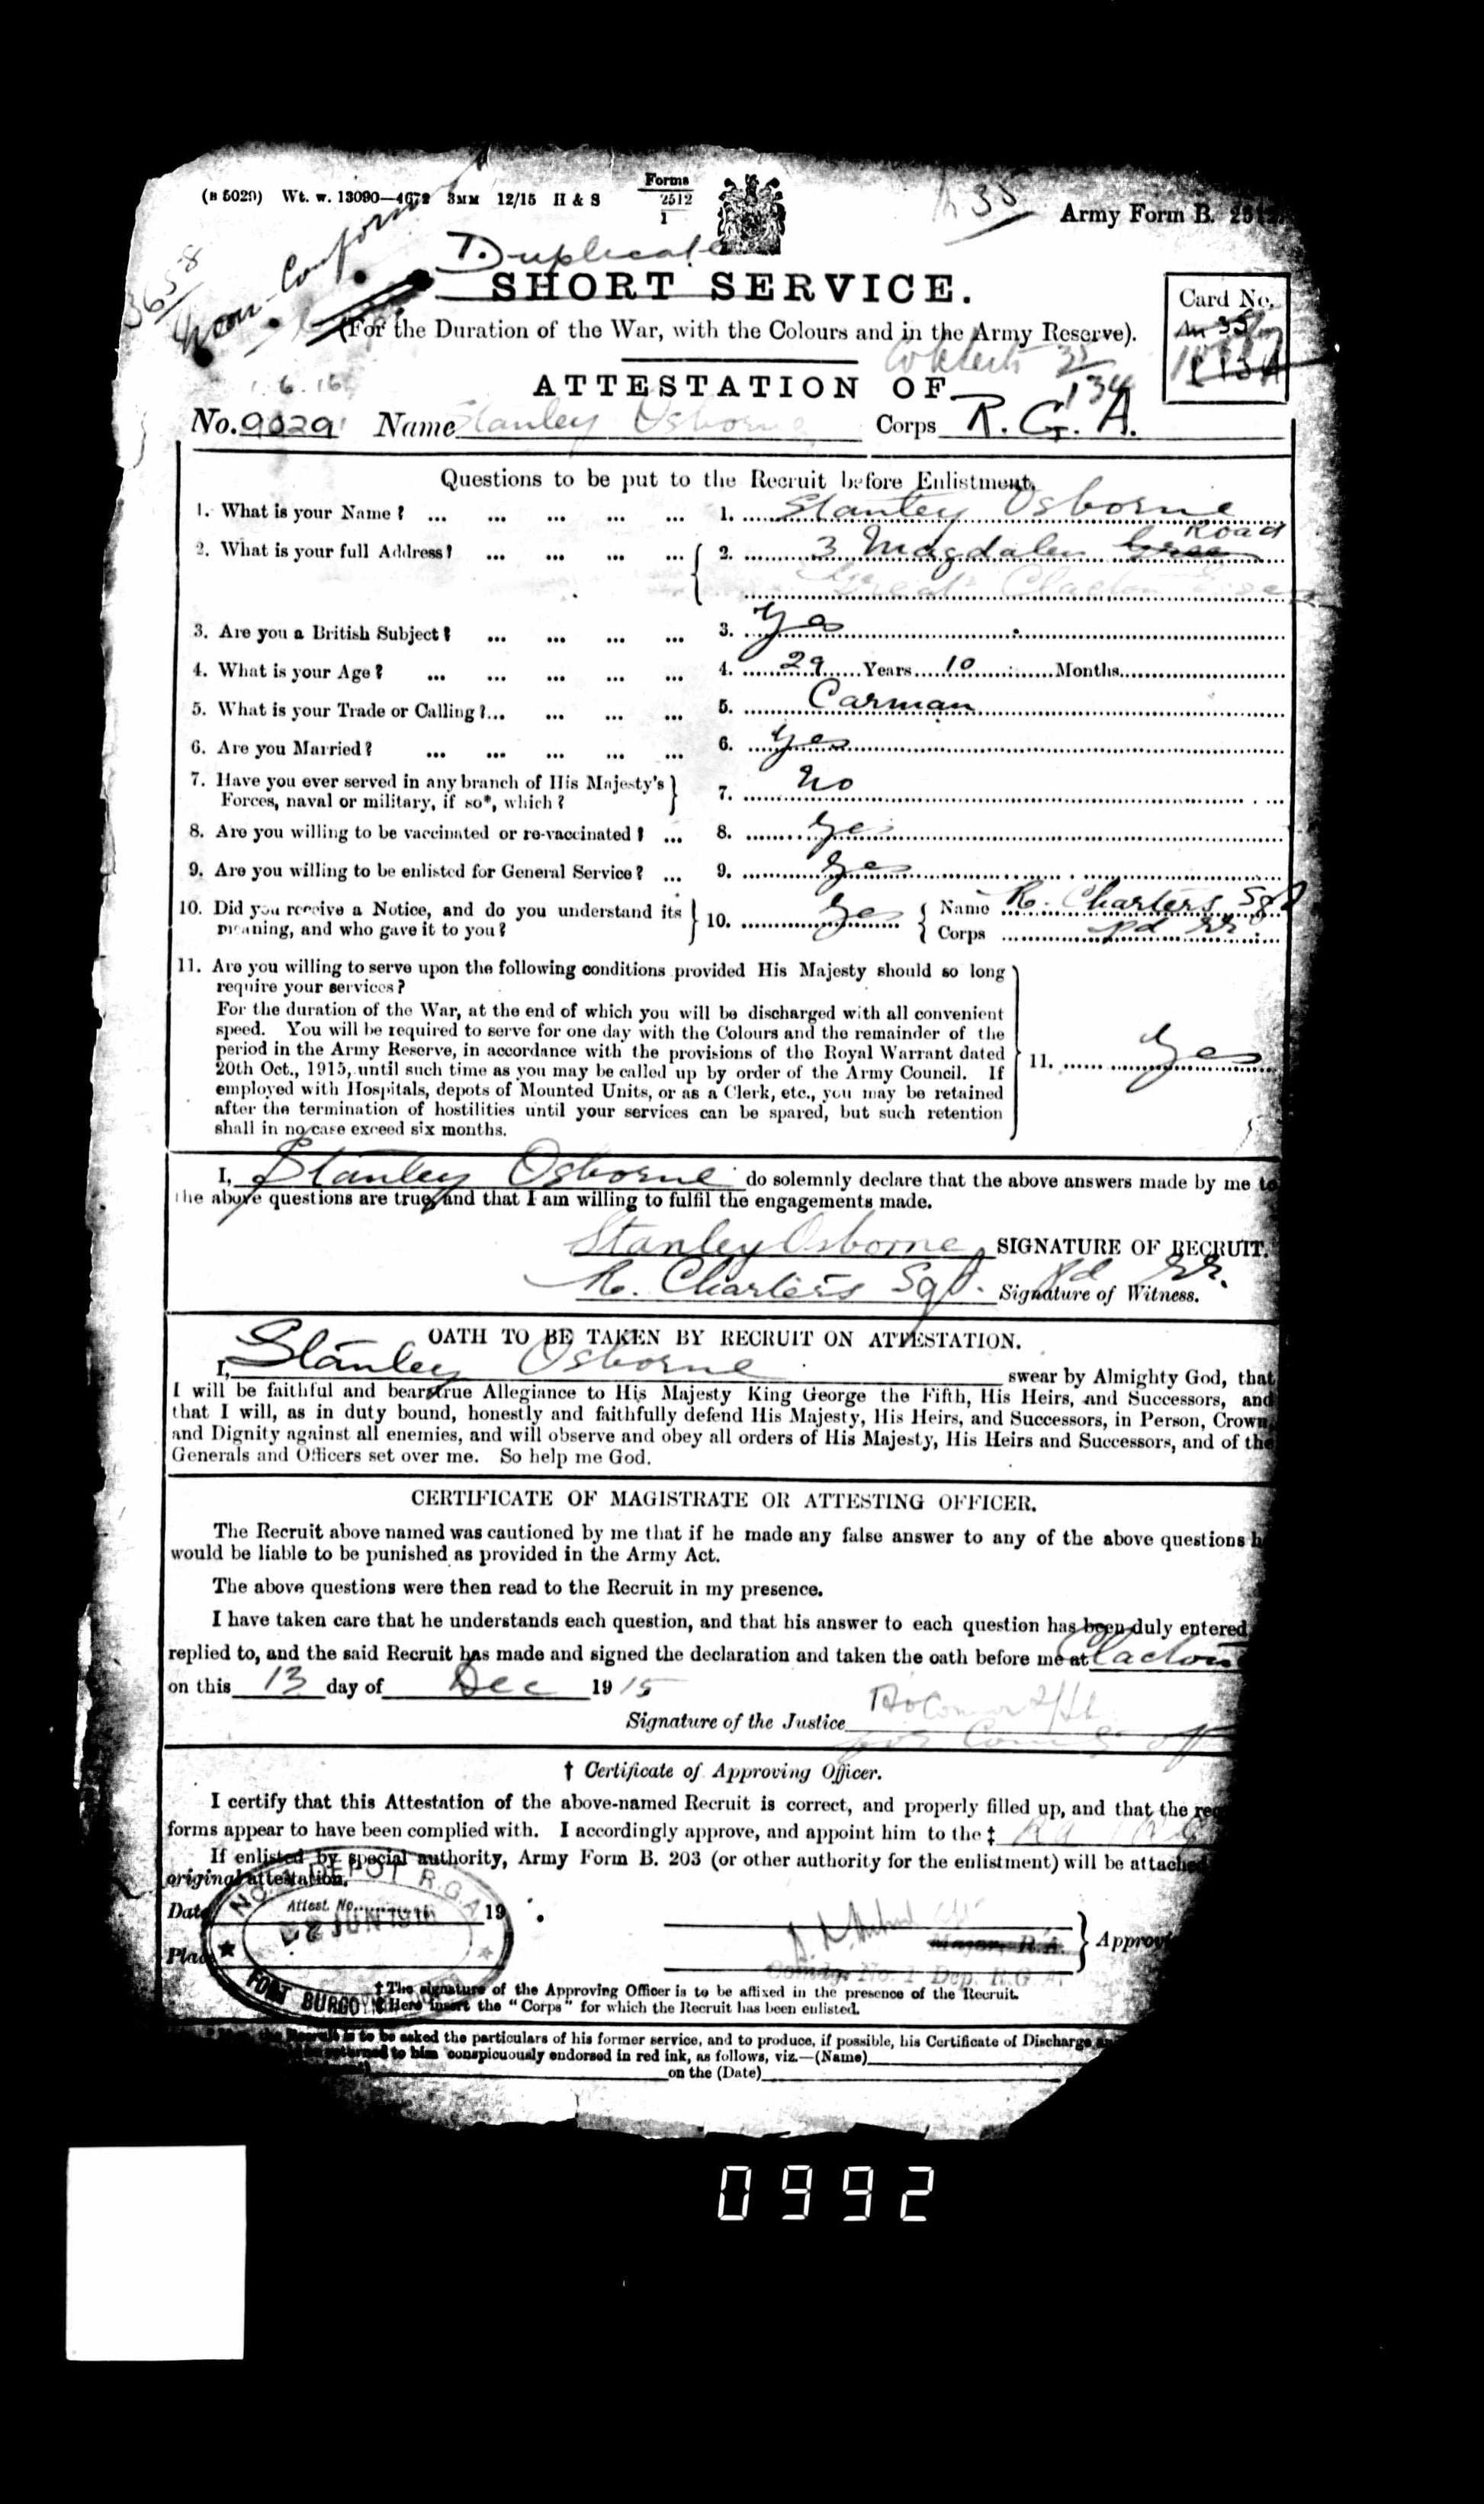 (B 5029) Wt. w. 13090—4672 3MM 12/15 H & S
Forms
2512
1
Army Form B. 251
3658
Non-Conform
Duplicate
SHORT SERVICE.
(For the Duration of the War, with the Colours and in the Army Reserve).
Card No.
1.6.16
ATTESTATION OF
No. 9029 Name Stanley Osborne Corps R.G.A.
Questions to be put to the Recruit before Enlistment.
1. What is your Name? ... ... ... ... ... 1. Stanley Osborne
Road
2. What is your full Address? ... ... ... ... 2. 3 Magdalen
Great Clacton Essex
3. Are you a British Subject? ... ... ... ... 3. Yes
4. What is your Age? ... ... ... ... ... 4. 29 Years 10 Months
5. What is your Trade or Calling?... ... ... ... 5. Carman
6. Are you Married? ... ... ... ... ... 6. Yes
7. Have you ever served in any branch of His Majesty's
Forces, naval or military, if so*, which? 7. No
8. Are you willing to be vaccinated or re-vaccinated? ... 8. Yes
9. Are you willing to be enlisted for General Service? ... 9. Yes
10. Did you receive a Notice, and do you understand its
meaning, and who gave it to you? 10. Yes Name R. Charters Sgt
Corps
11. Are you willing to serve upon the following conditions provided His Majesty should so long
require your services?
For the duration of the War, at the end of which you will be discharged with all convenient
speed. You will be required to serve for one day with the Colours and the remainder of the
period in the Army Reserve, in accordance with the provisions of the Royal Warrant dated
20th Oct., 1915, until such time as you may be called up by order of the Army Council. If
employed with Hospitals, depots of Mounted Units, or as a Clerk, etc., you may be retained
after the termination of hostilities until your services can be spared, but such retention
shall in no case exceed six months.
11. Yes
I, Stanley Osborne do solemnly declare that the above answers made by me to
the above questions are true, and that I am willing to fulfil the engagements made.
Stanley Osborne SIGNATURE OF RECRUIT.
R. Charters Sgt. Signature of Witness.
OATH TO BE TAKEN BY RECRUIT ON ATTESTATION.
I, Stanley Osborne swear by Almighty God, that
I will be faithful and bear true Allegiance to His Majesty King George the Fifth, His Heirs, and Successors, and
that I will, as in duty bound, honestly and faithfully defend His Majesty, His Heirs, and Successors, in Person, Crown,
and Dignity against all enemies, and will observe and obey all orders of His Majesty, His Heirs and Successors, and of the
Generals and Officers set over me. So help me God.
CERTIFICATE OF MAGISTRATE OR ATTESTING OFFICER.
The Recruit above named was cautioned by me that if he made any false answer to any of the above questions h
would be liable to be punished as provided in the Army Act.
The above questions were then read to the Recruit in my presence.
I have taken care that he understands each question, and that his answer to each question has been duly entered
replied to, and the said Recruit has made and signed the declaration and taken the oath before me at Clacton
on this 13 day of Dec 1915
Signature of the Justice
† Certificate of Approving Officer.
I certify that this Attestation of the above-named Recruit is correct, and properly filled up, and that the req
forms appear to have been complied with. I accordingly approve, and appoint him to the ‡
If enlisted by special authority, Army Form B. 203 (or other authority for the enlistment) will be attached
original attestation.
NO. DEPOT R.G.A.
Attest. No.
Date 2 JUN 1916 19
Major, R.A. Approv
Place
Comdg. No. 1 Dep. R.G.A.
FORT BURGO
† The signature of the Approving Officer is to be affixed in the presence of the Recruit.
‡ Here insert the "Corps" for which the Recruit has been enlisted.
Recruit is to be asked the particulars of his former service, and to produce, if possible, his Certificate of Discharge
returned to him conspicuously endorsed in red ink, as follows, viz.—(Name)
on the (Date)
0992